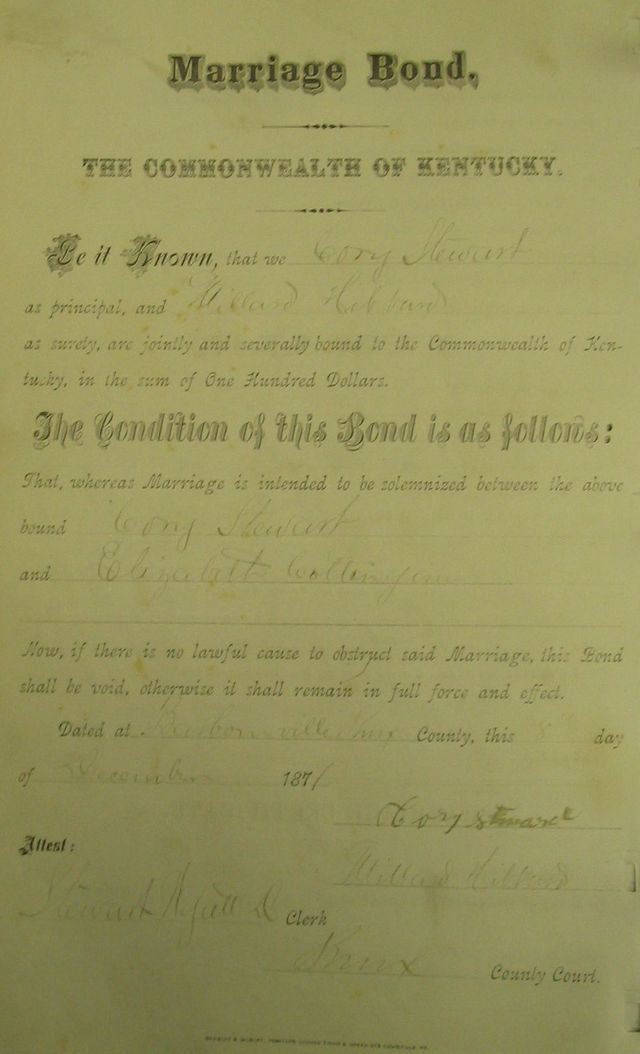 Marriage Bond,
THE COMMONWEALTH OF KENTUCKY.
Be it Known, that we Cory Stewart
as principal, and Millard Hibbard
as surety, are jointly and severally bound to the Commonwealth of Ken-
tucky, in the sum of One Hundred Dollars.
The Condition of this Bond is as follows:
That, whereas Marriage is intended to be solemnized between the above
bound Cory Stewart
and Elizabeth
Now, if there is no lawful cause to obstruct said Marriage, this Bond
shall be void, otherwise it shall remain in full force and effect.
Dated at Barbourville Knox County, this 8th day
of December 1871
Cory Stewart
Attest:
Millard Hibbard
Stewart Clerk
Knox County Court.